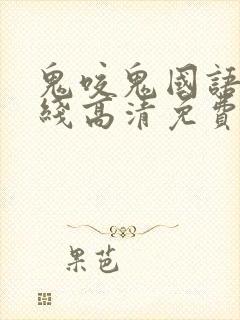 鬼咬鬼國語
綫高清免費
果芭